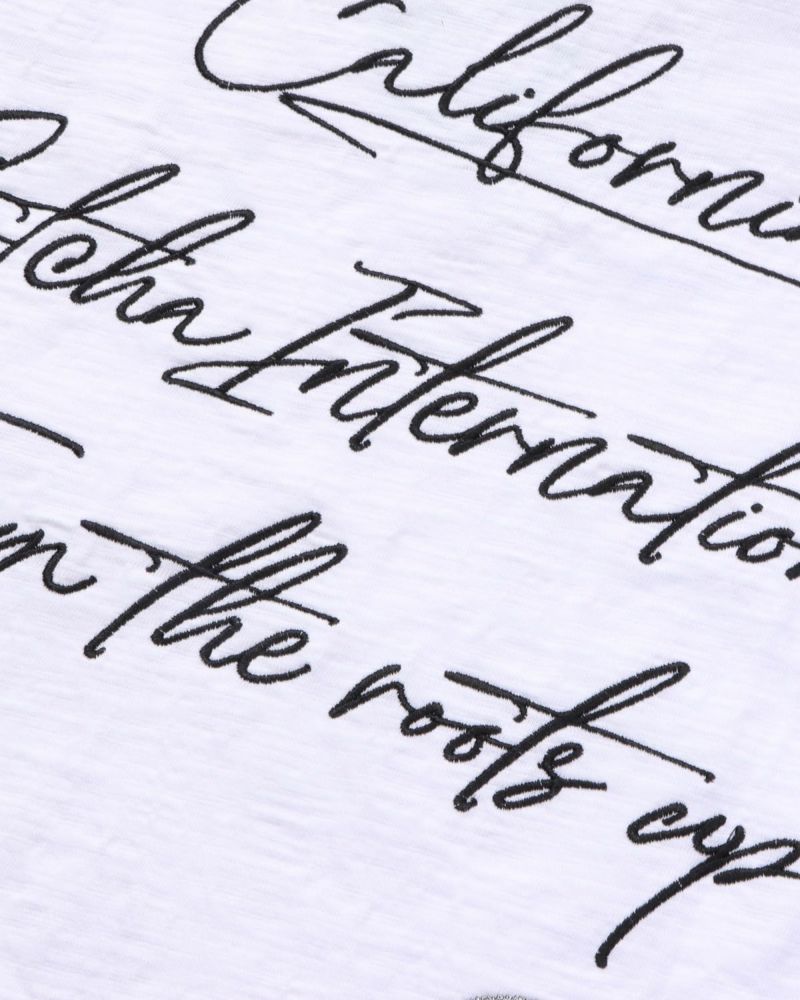 Californi
tcha Internation
the roots cup